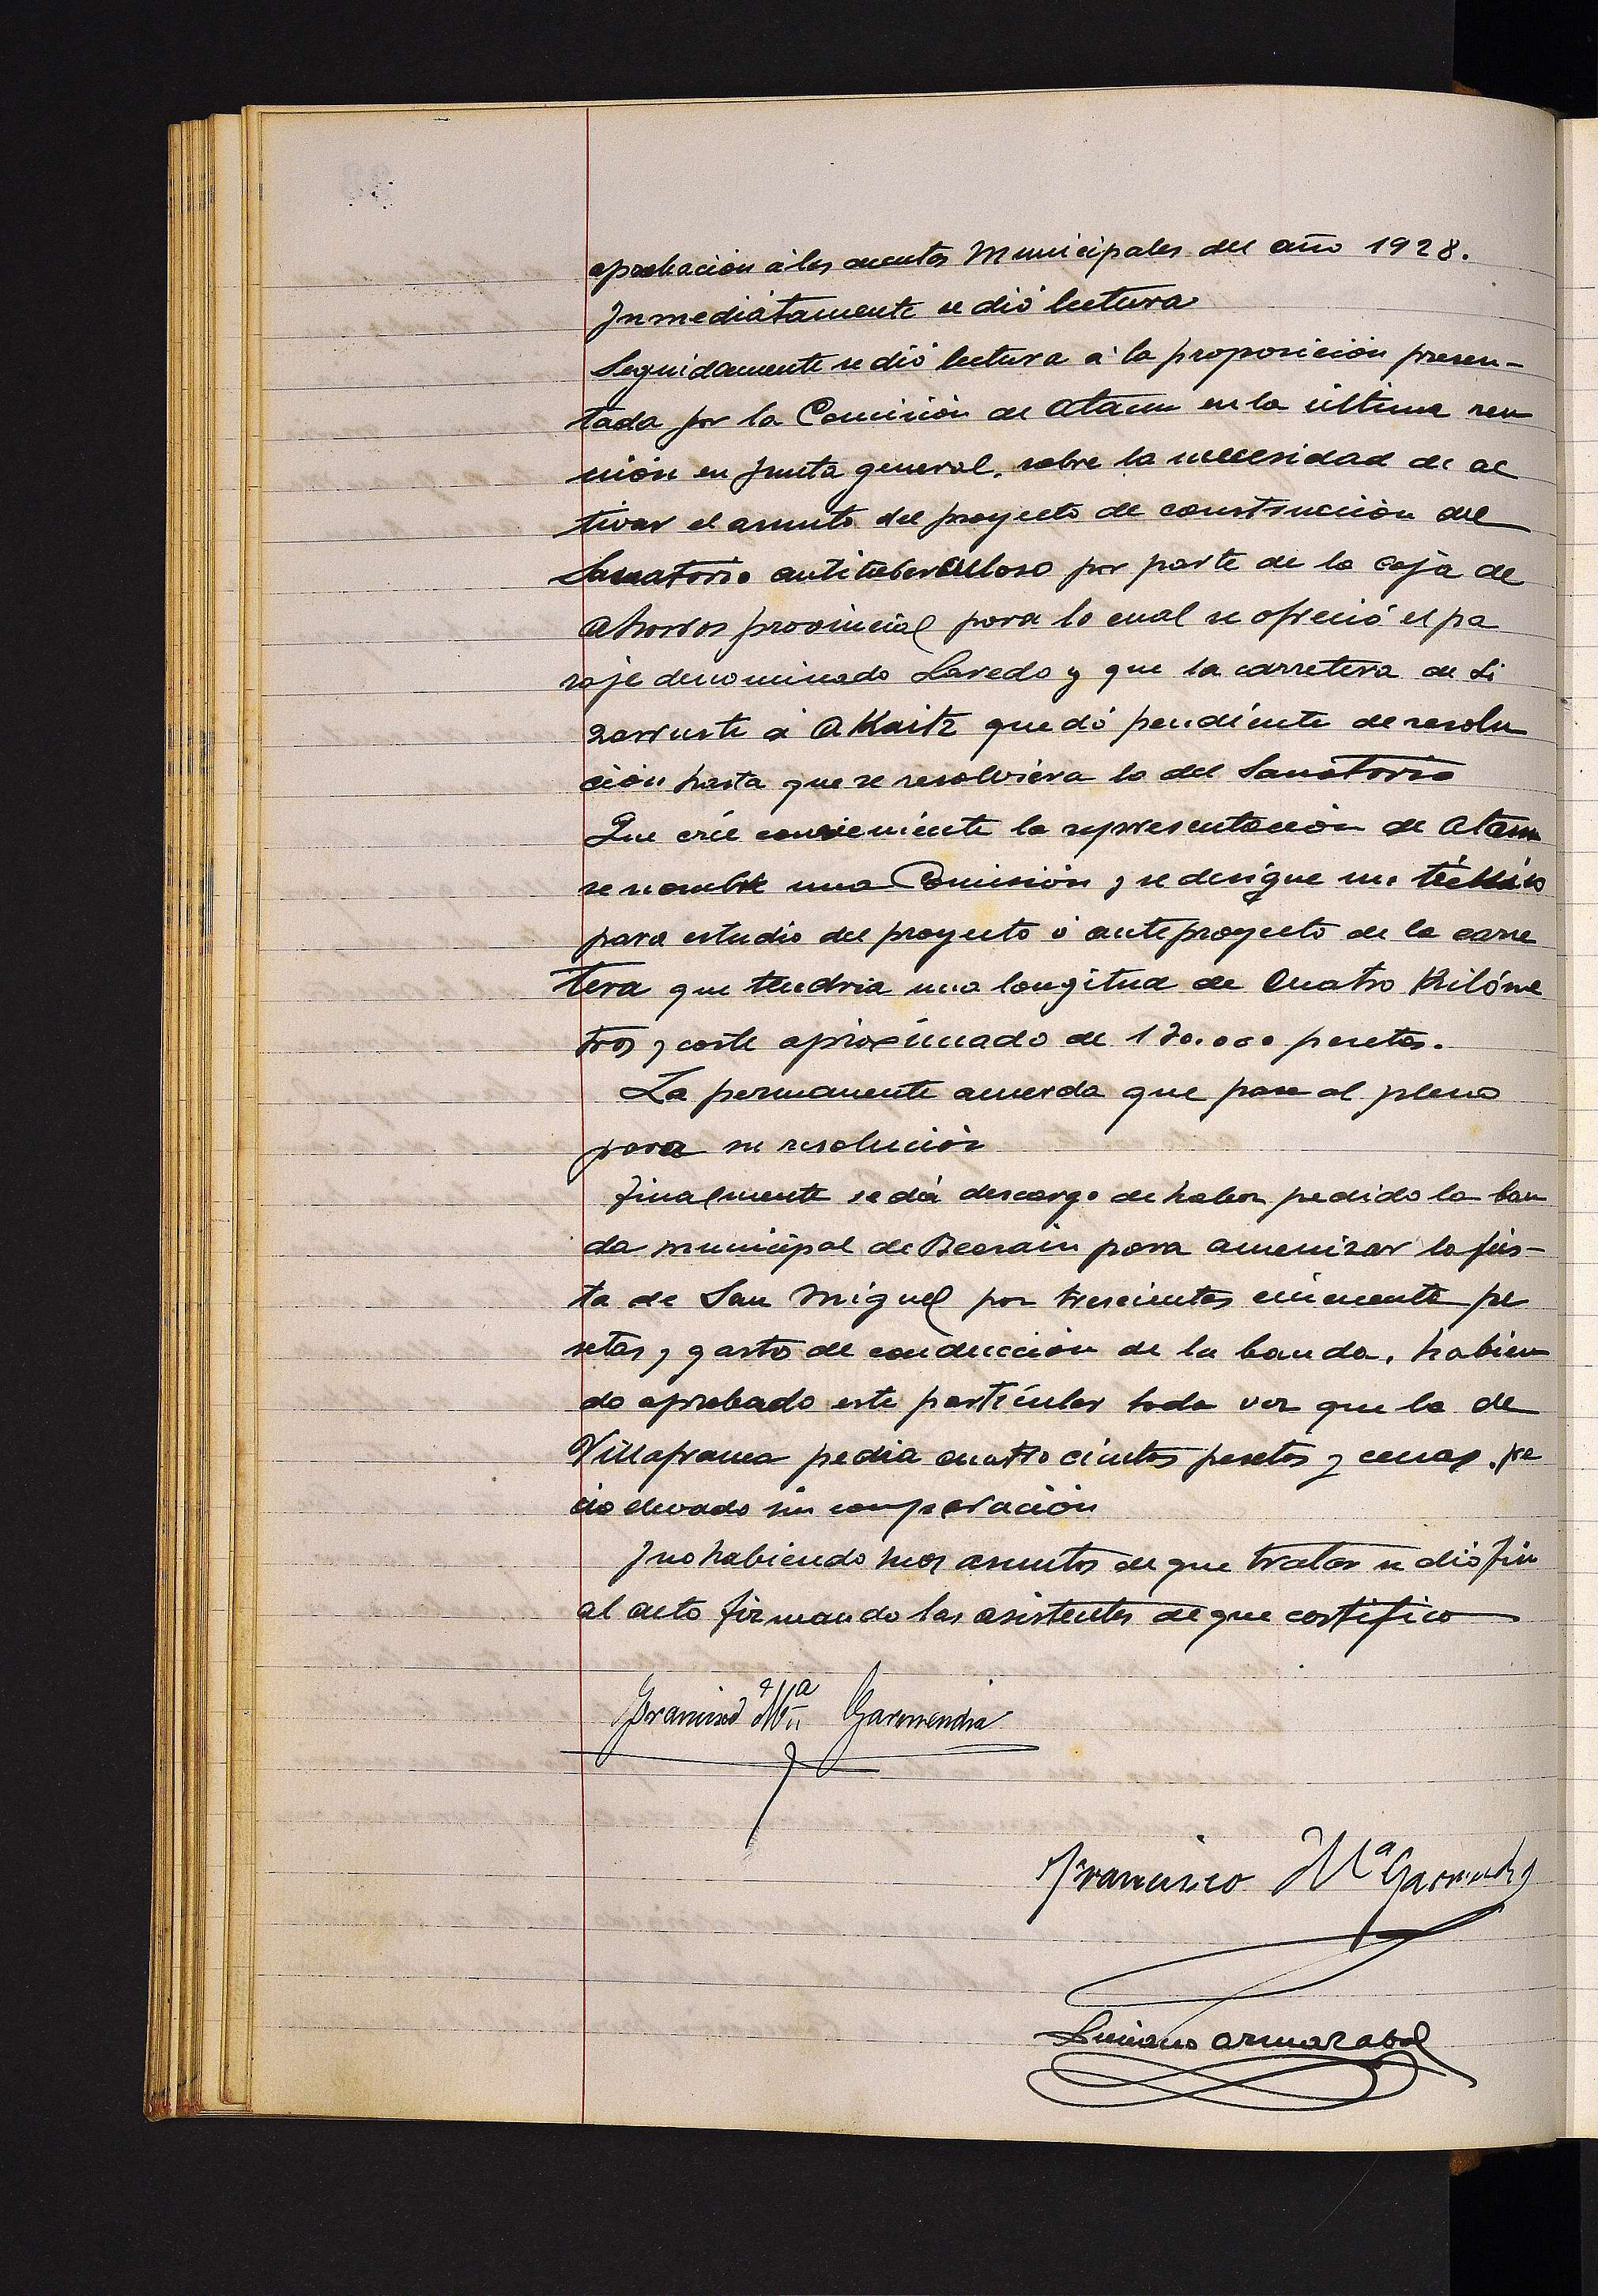 aprobacion á las cuentas Municipales del año 1928.
Inmediátamente se dió lectura
Seguidamente se dió lectura á la proposicion presen-
tada por la Comisión de Ataun en la última reu
nión en junta general, sobre la necesidad de ac
tivar el asunto del proyecto de construcción del
Sanatorio antituberculloso por parte de la caja de
Ahorros provincial para lo cual se ofreció el pa
raje denominado Laredo y que la carretera de Li
zarruste á Akaitz quedó pendiente de resolu
ción hasta que se resolviera lo del Sanatorio
Que crée conveniente la representación de Ataun
se nombre una Comisión y se designe un técnico
para estudio del proyecto ó anteproyecto de la carre
tera que tendria una longitud de Cuatro Kilóme
tros y coste aproximado de 170.000 pesetas.
La permanente acuerda que pase al pleno
para su resolución
Finalmente se dá descargo de haber pedido la ban
da municipal de Beasain para amenizar la fies-
ta de San Miguel por trescientas cincuenta pe
setas y gasto de conducción de la banda, habien
do aprobado este particular toda vez que la de
Villafranca pedia cuatro cientas pesetas y cenas, pre
cio elevado sin comparación
Y no habiendo mas asuntos de que tratar se dió fin
al acto firmando los asistentes de que certifico
Francisco Mª Garmendia
Francisco Mª Garmendia
Luciano Armazabal